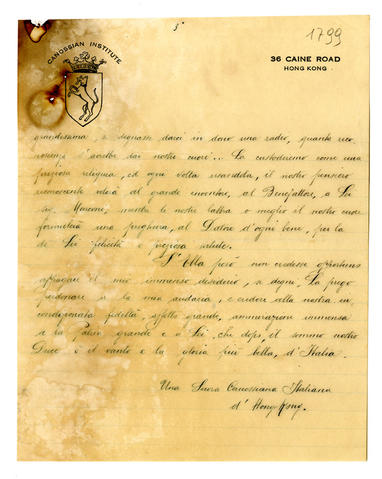 3
1799
CANOSSIAN INSTITUTE
36 CAINE ROAD
HONG KONG
grandissima e degnasse darci in dono una radio, quanta rico-
noscenza d'avrebbe dai nostri cuori... La custodiremo come una
preziosa reliquia, ed ogni volta il nostro pensiero
riconoscente volerà al grande inventore, al Benefattore, a Lei
Sig. Marconi, mentre le nostre labbra o meglio il nostro cuore
formulerà una preghiera, al Datore d'ogni bene, per la
di Lei felicità e preziosa salute.
S'Ella però non credesse
appagare il mio immenso desiderio, si degni, La prego
perdonare a la mia audacia, e credere alla nostra in-
condizionata fedeltà, affetto grande, ammirazione immensa
a la Patria grande e a Lei, che dopo il sommo nostro
Duce è il vanto e la gloria più bella, d'Italia.
Una Suora Canossiana Italiana
d'Hong Kong.